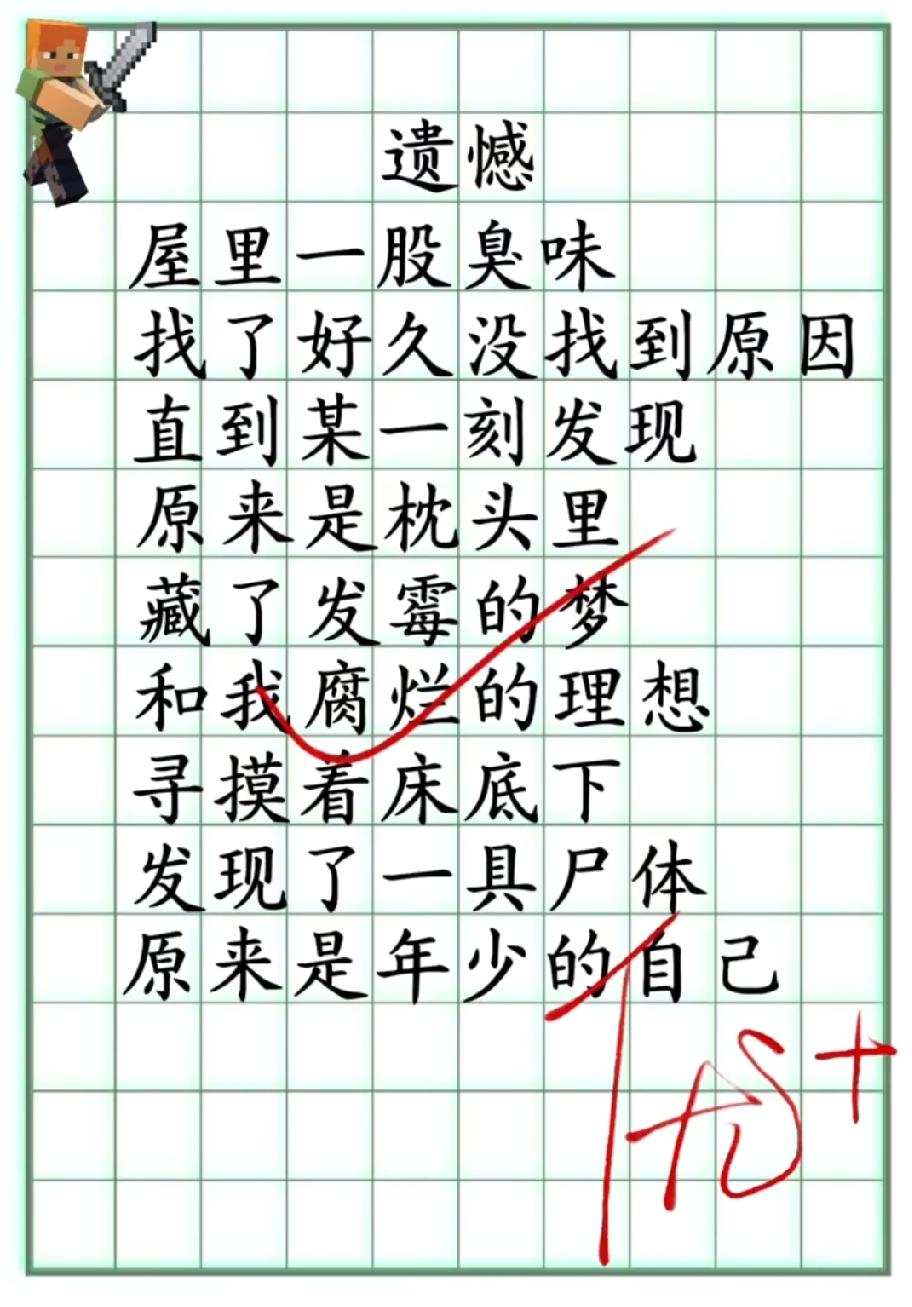 遗憾
屋里一股臭味
找了好久没找到原因
直到某一刻发现
原来是枕头里
藏了发霉的梦
和我腐烂的理想
寻摸着床底下
发现了一具尸体
原来是年少的自己